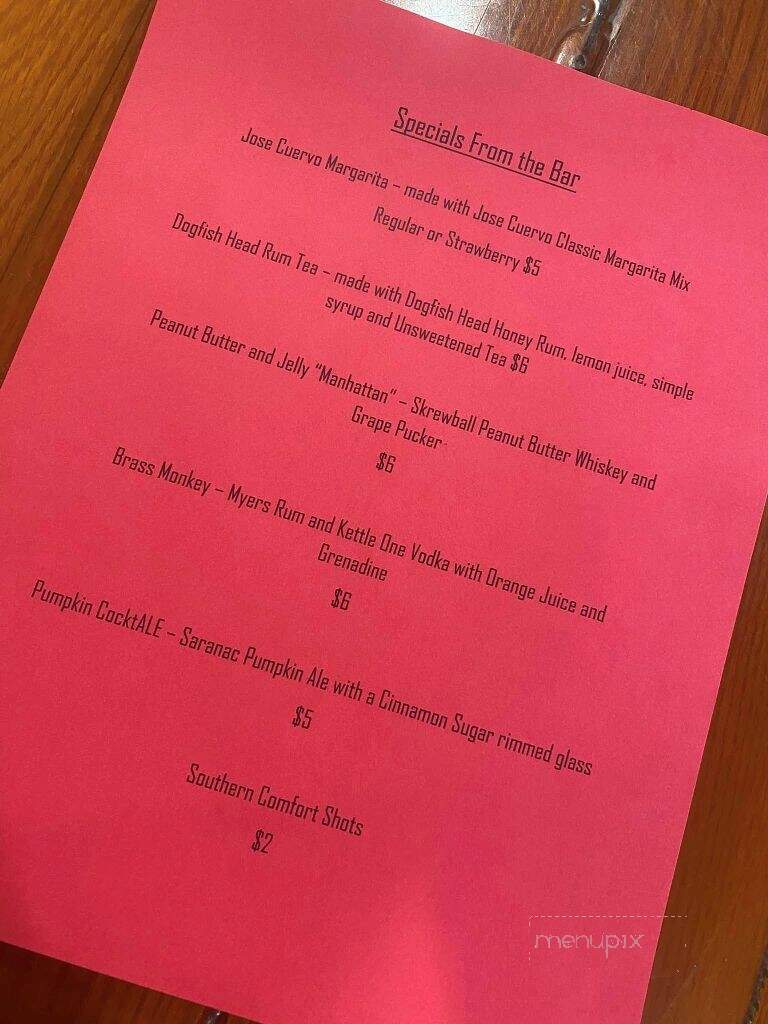 Specials From the Bar
Jose Cuervo Margarita – made with Jose Cuervo Classic Margarita Mix
Regular or Strawberry $5
Dogfish Head Rum Tea – made with Dogfish Head Honey Rum, lemon juice, simple
syrup and Unsweetened Tea $6
Peanut Butter and Jelly "Manhattan" – Skrewball Peanut Butter Whiskey and
Grape Pucker
$6
Brass Monkey – Myers Rum and Kettle One Vodka with Orange Juice and
Grenadine
$6
Pumpkin CocktALE – Saranac Pumpkin Ale with a Cinnamon Sugar rimmed glass
$5
Southern Comfort Shots
$2
menupix